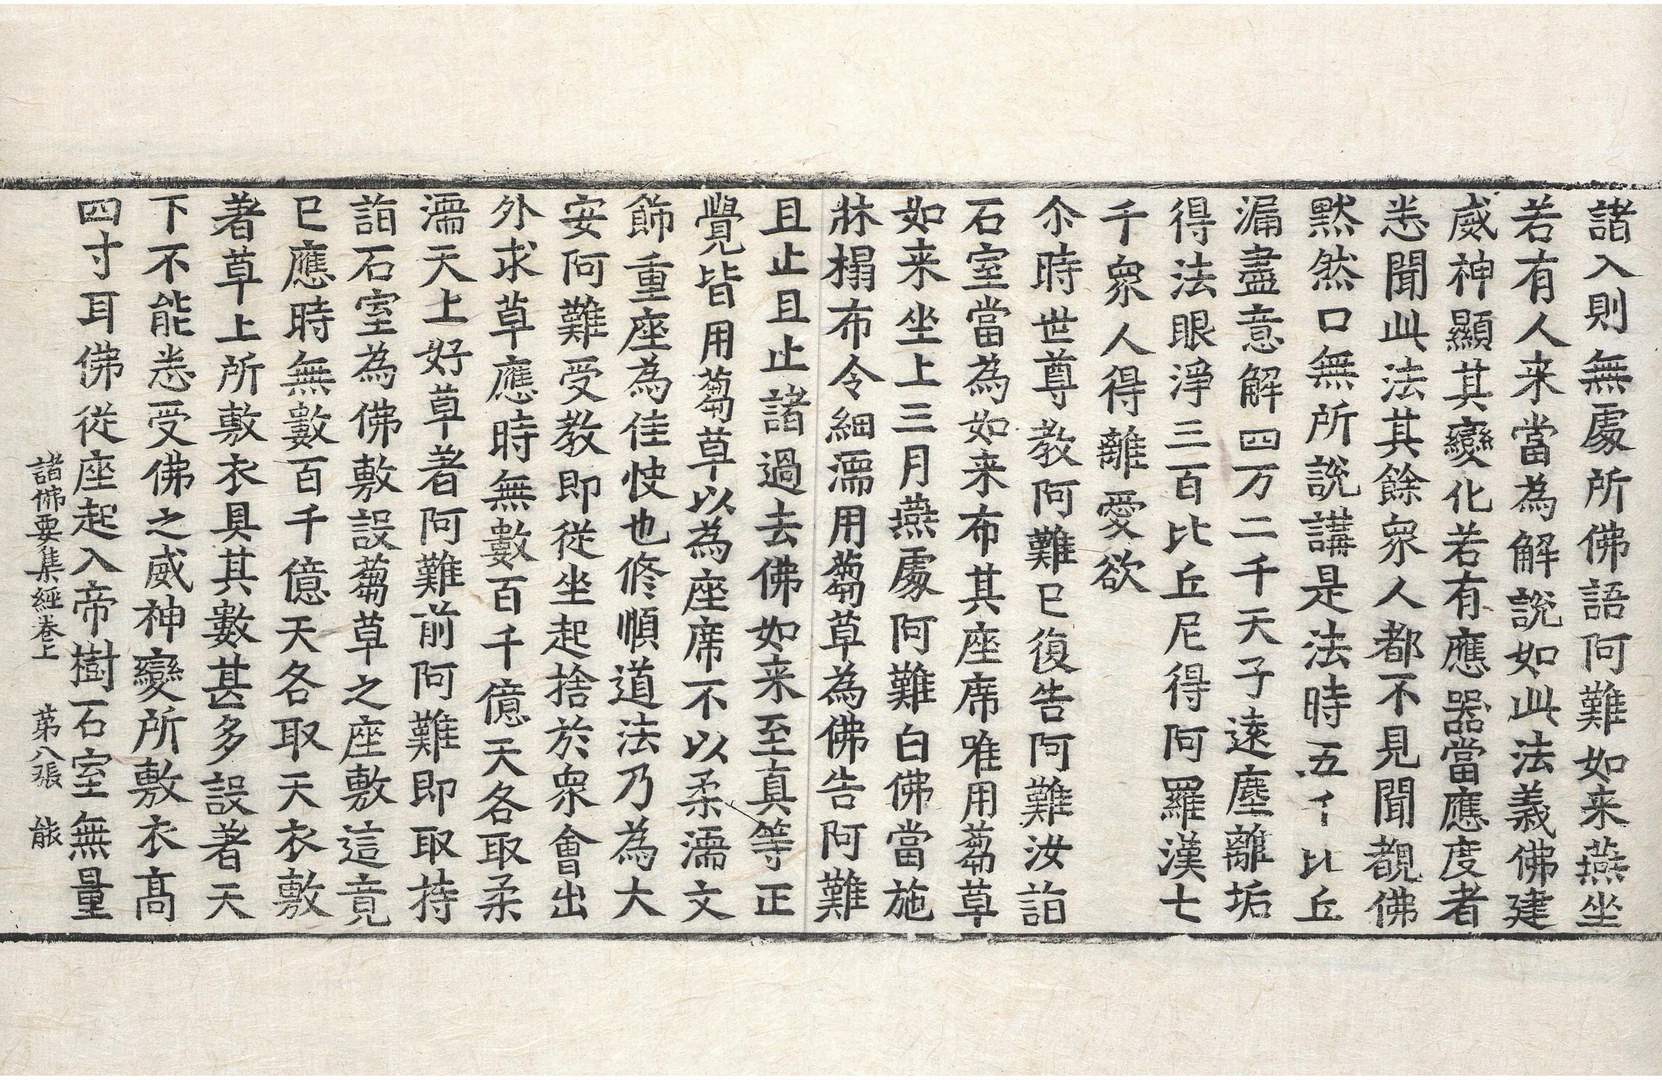 諸入則無處所佛語阿難如来燕坐
若有人来當為解說如此法義佛建
威神顯其變化若有應器當應度者
悉聞此法其餘衆人都不見聞覩佛
黙然口無所說講是法時五千比丘
漏盡意解四万二千天子遠塵離垢
得法眼淨三百比丘尼得阿羅漢七
千衆人得離愛欲
尒時世尊教阿難已復告阿難汝詣
石室當為如来布其座席唯用蒭草
如来坐上三月燕處阿難白佛當施
牀榻布令細濡用蒭草為佛告阿難
且止且止諸過去佛如来至真等正
覺皆用蒭草以為座席不以柔濡文
飾重座為佳快也修順道法乃為大
安阿難受教即從坐起捨於衆會出
外求草應時無數百千億天各取柔
濡天上好草著阿難前阿難即取持
詣石室為佛敷設蒭草之座敷這竟
已應時無數百千億天各取天衣敷
著草上所敷衣具其數甚多設著天
下不能悉受佛之威神變所敷衣高
四寸耳佛從座起入帝樹石室無量
諸佛要集經卷上 第八張 能